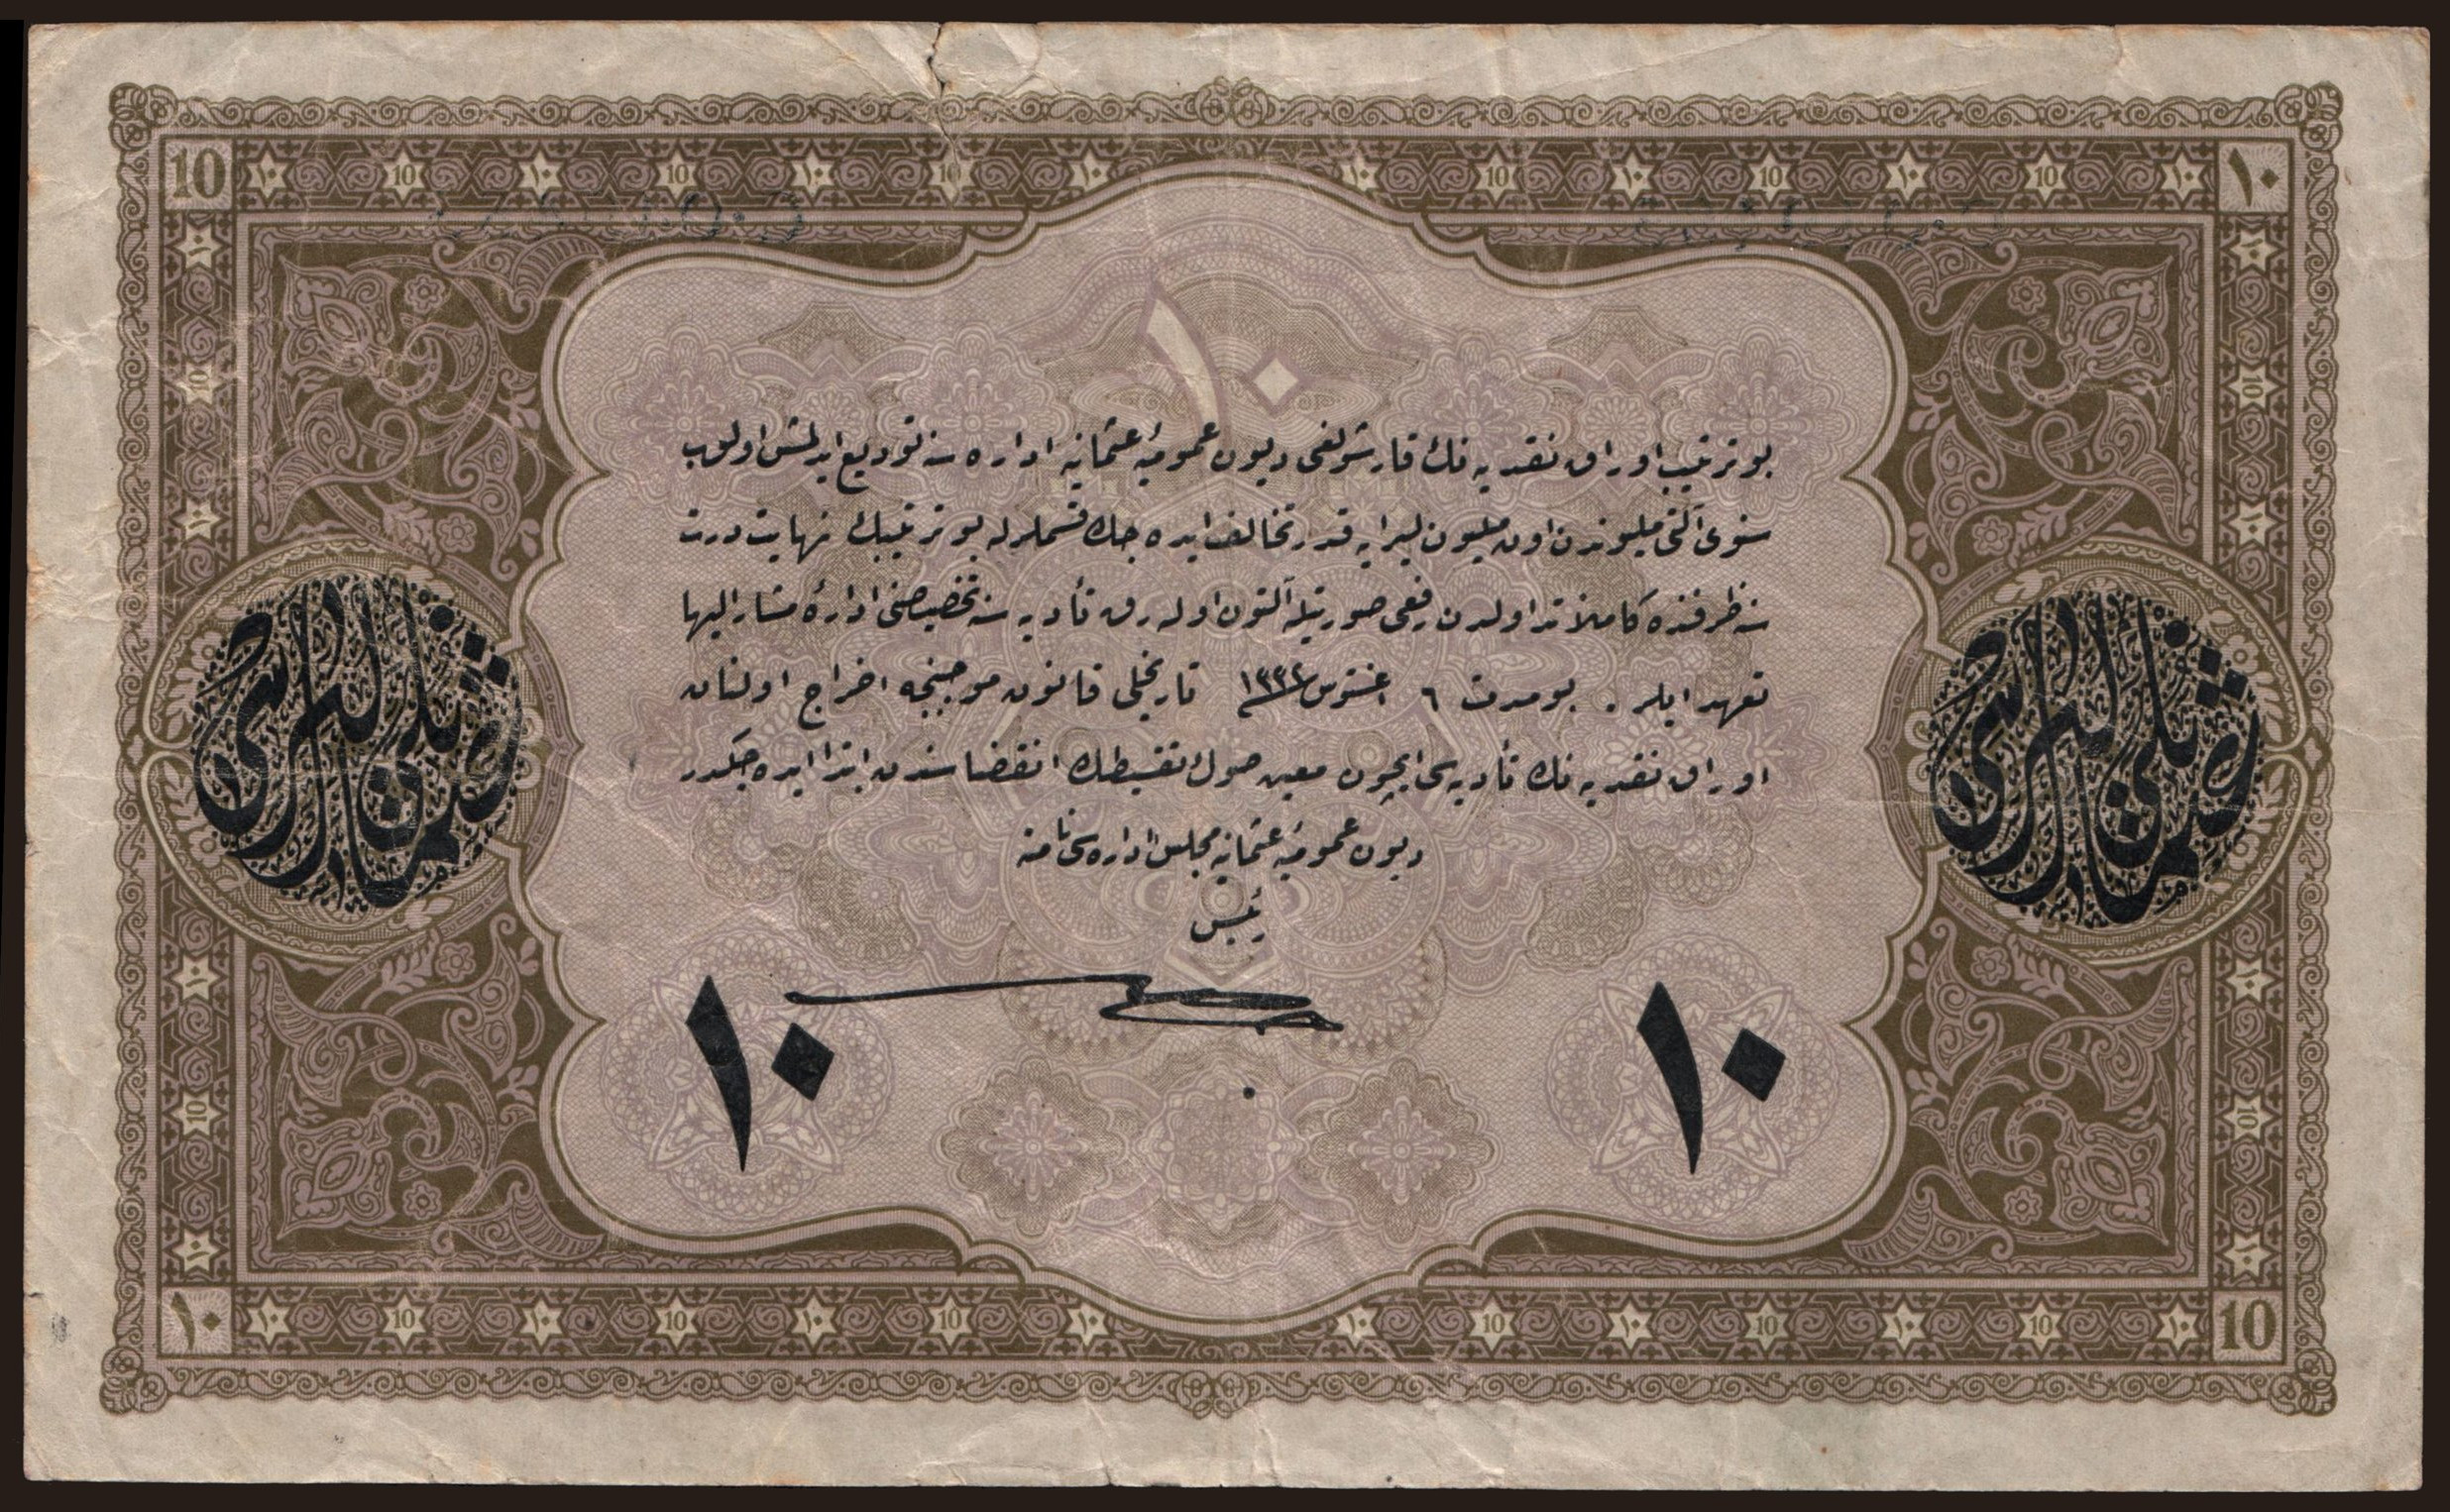 10 ١٠ 10 ١٠ 10 ١٠ 10 ١٠ ١٠ 10 ١٠ 10 ١٠ 10 ١٠ ١٠
١٠
بو ترتیب اوراق نقدیه نك قارشولغی دیون عمومیهٔ عثمانیه اداره سنه تودیع ایدلمش اولوب
سنوی آلتی ملیوندن اون ملیون لیرایه قدر تخالف ایده جك قسملرله بو ترتیبك نهایت درت
سنه ظرفنده كاملاً تداولدن رفعی صورتیله آلتون اوله رق تأدیه سنه تخصیصنی ادارهٔ مشار الیها
تعهد ایلر . بو مدت ٦ اغستوس ١٣٣٢ تاریخلی قانون موجبنجه اخراج اولنان
اوراق نقدیه نك تأدیه سی ایچون معین صوك تقسیطك انقضاسندن ابتدا ایده جكدر
دیون عمومیهٔ عثمانیه مجلس اداره سی نامنه
رئیس
١٠ ١٠
١٠ ١٠ 10 ١٠ 10 ١٠ 10 ١٠ ١٠ 10 ١٠ 10 ١٠ 10 ١٠ 10